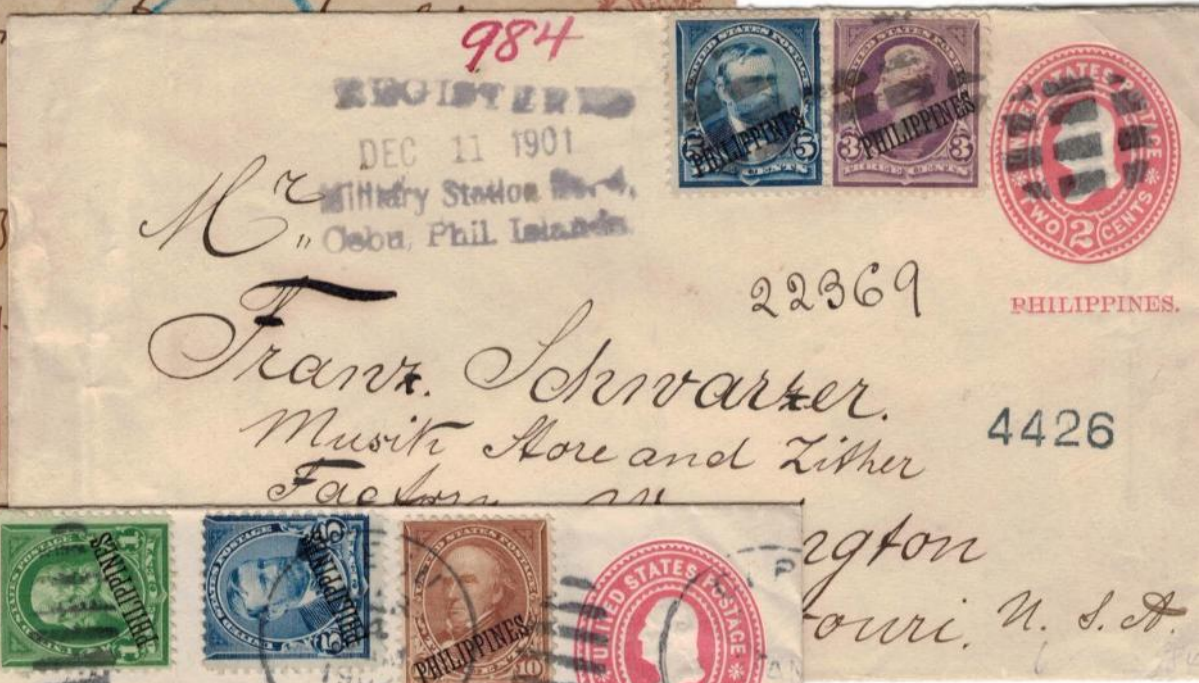 984
REGISTERED
DEC 11 1901
Military Station No. 4,
Cebu, Phil. Islands.
UNITED STATES POSTAGE
PHILIPPINES
5 5
UNITED STATES POSTAGE
PHILIPPINES
3 3
UNITED STATES POSTAGE
TWO 2 CENTS
PHILIPPINES.
Mr.
22369
Franz. Schwarzer.
4426
Musik Store and Zither
Factory
ngton
ouri. U. S. A.
PHILIPPINES
UNITED STATES POSTAGE
PHILIPPINES
5
UNITED STATES POSTAGE
PHILIPPINES
10
UNITED STATES POSTAGE
P